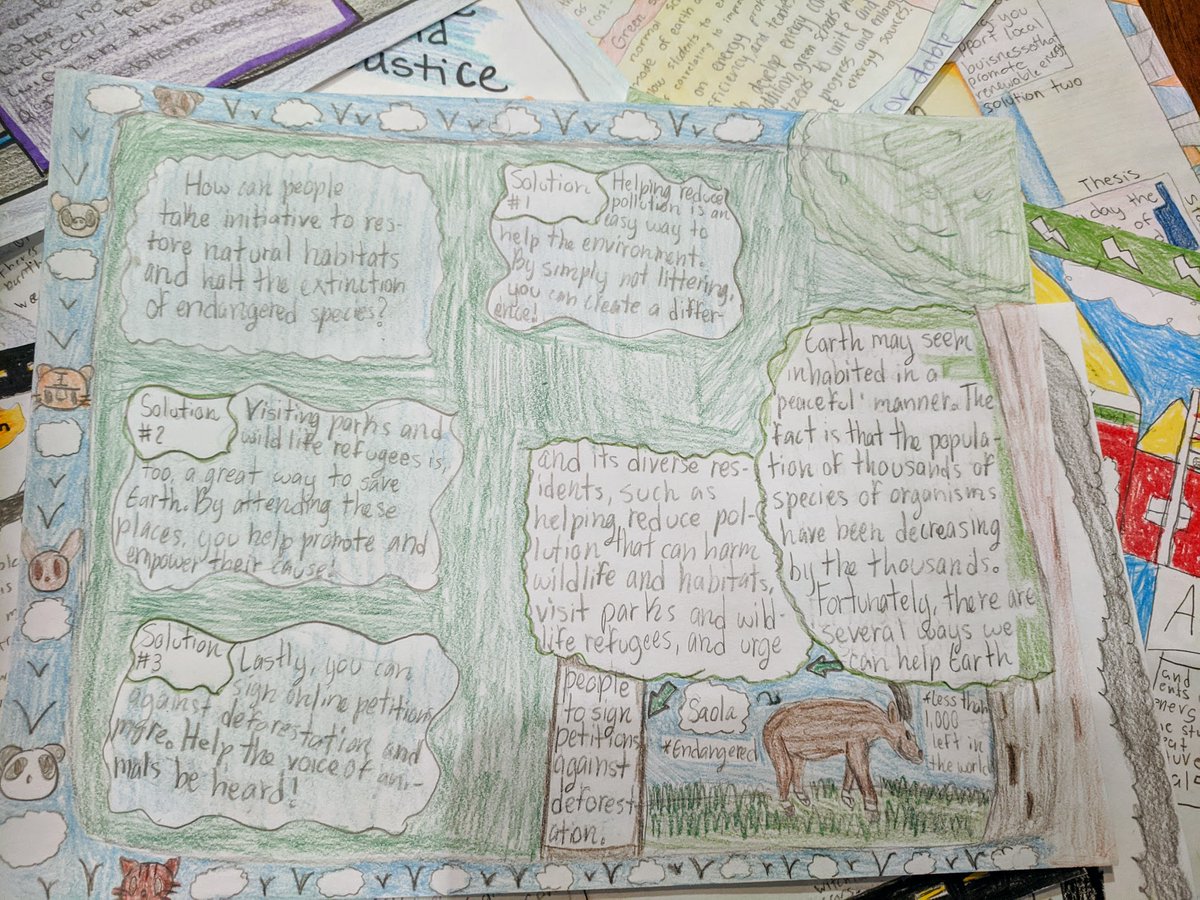 How can people
take initiative to res-
tore natural habitats
and halt the extinction
of endangered species?
Solution
#1
Helping reduce
pollution is an
easy way to
help the environment.
By simply not littering,
you can create a differ-
ence!
Solution
#2
Visiting parks and
wild life refugees is,
too, a great way to save
Earth. By attending these
places, you help promote and
empower their cause!
Solution
#3
Lastly, you can
sign online petition
against deforestation and
more. Help the voice of ani-
mals be heard!
Earth may seem
inhabited in a
peaceful manner. The
fact is that the popula-
tion of thousands of
species of organisms
have been decreasing
by the thousands.
Fortunately, there are
several ways we
can help Earth
and its diverse res-
idents, such as
helping reduce pol-
lution that can harm
wildlife and habitats,
visit parks and wild-
life refugees, and urge
people
to sign
petitions
against
deforest-
ation.
Saola
*Endangered
*less than
1,000
left in
the world
Justice
Green
energy
efficiency and
energy sources
dable
you
local
buisnesse that
promote
renewable
solution two
Thesis
day the
of
A
and